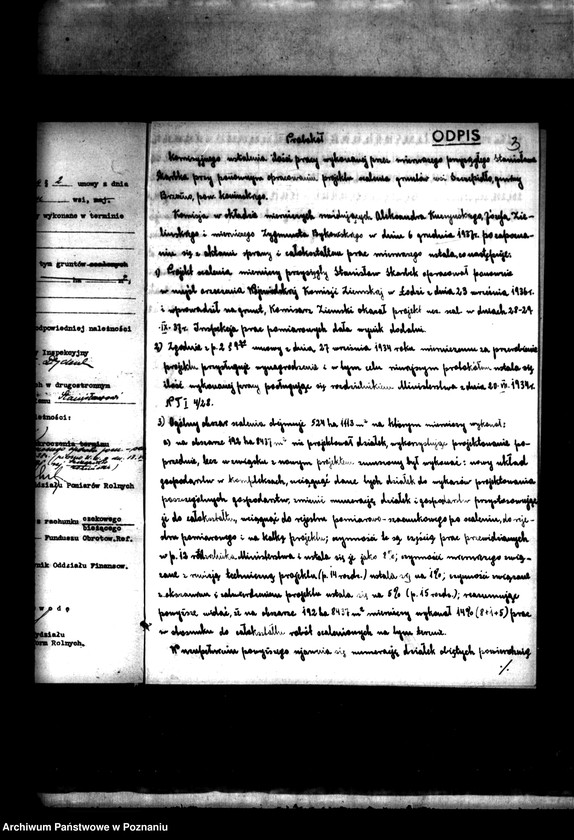 § 2 umowy z dnia
wsi, maj.
wykonane w terminie
tym gruntów scalonych
ha m²,
odpowiedniej należności
Inspekcyjny
w drugostronnym
Stanisławowi
należności:
przekroczenia terminu
Oddziału Pomiarów Rolnych
z rachunku czekowego
bieżącego
Funduszu Obrotow.Ref.
Oddziału Finansow.
wodę
Wydziału
Rolnych.
ODPIS
3
Protokół
Komisyjnego ustalenia ilości pracy wykonanej przez mierniczego przysięgłego Stanisława
Skartka przy ponownym opracowaniu projektu scalenia gruntów wsi gminy
pow. konińskiego.
Komisja w składzie mierniczych Aleksandra Józefa Zie-
lińskiego i mierniczego Zygmunta Bykowskiego w dniu 6 grudnia 1937r. po zapozna-
niu się z aktami sprawy i całokształtem prac mierniczego ustala, co następuje:
1) Projekt scalenia mierniczy przysięgły Stanisław Skartek opracował ponownie
w myśl orzeczenia Wojewódzkiej Komisji Ziemskiej w Łodzi z dnia 23 września 1936r.
i wprowadził na grunt, Komisarz Ziemski okazał projekt w dniach 28-29
IX. 37r. Inspekcja prac pomiarowych dała wynik dodatni.
2) Zgodnie z p. 2 umowy z dnia 27 września 1934 roku mierniczemu za przerobienie
projektu przysługuje wynagrodzenie i w tym celu niniejszym protokółem ustala się
ilość wykonanej pracy posługując się rozdzielnikiem Ministerstwa z dnia 20. IV. 1934r.
4/28.
3) Ogólny obszar scalenia obejmuje 524 ha 1113 m² na którym mierniczy wykonał:
a) na obszarze 192 ha 8437 m² nie projektował działek, wykorzystując projektowanie po-
przednie, lecz w związku z nowym projektem zmuszony był wykonać: nowy układ
gospodarstw w kompleksach, wciągnąć dane tych działek do wykazów projektowania
poszczególnych gospodarstw, zmienić numerację działek i gospodarstw przystosowując
je do całokształtu, wciągnąć do rejestru pomiarowo-szacunkowego po scaleniu, do reje-
stru pomiarowego i na kalkę projektu; czynności te są częścią prac przewidzianych
w p. 13 rozdzielnika Ministerstwa i ustala się je jako 8%; czynności mierniczego zwią-
zane z techniczną projektu (p. 14 rozdz.) ustala się na 1%; czynności związane
z okazaniem i zatwierdzeniem projektu ustala się na 5% (p. 15 rozdz.); reasumując
powyższe widać, iż na obszarze 192 ha 8437 m² mierniczy wykonał 14% (8+1+5) prac
w stosunku do całokształtu robót scaleniowych na tym terenie.
W uzupełnieniu powyższego ujawnia się numerację działek objętych powierzchnią
./.
Archiwum Państwowe w Poznaniu